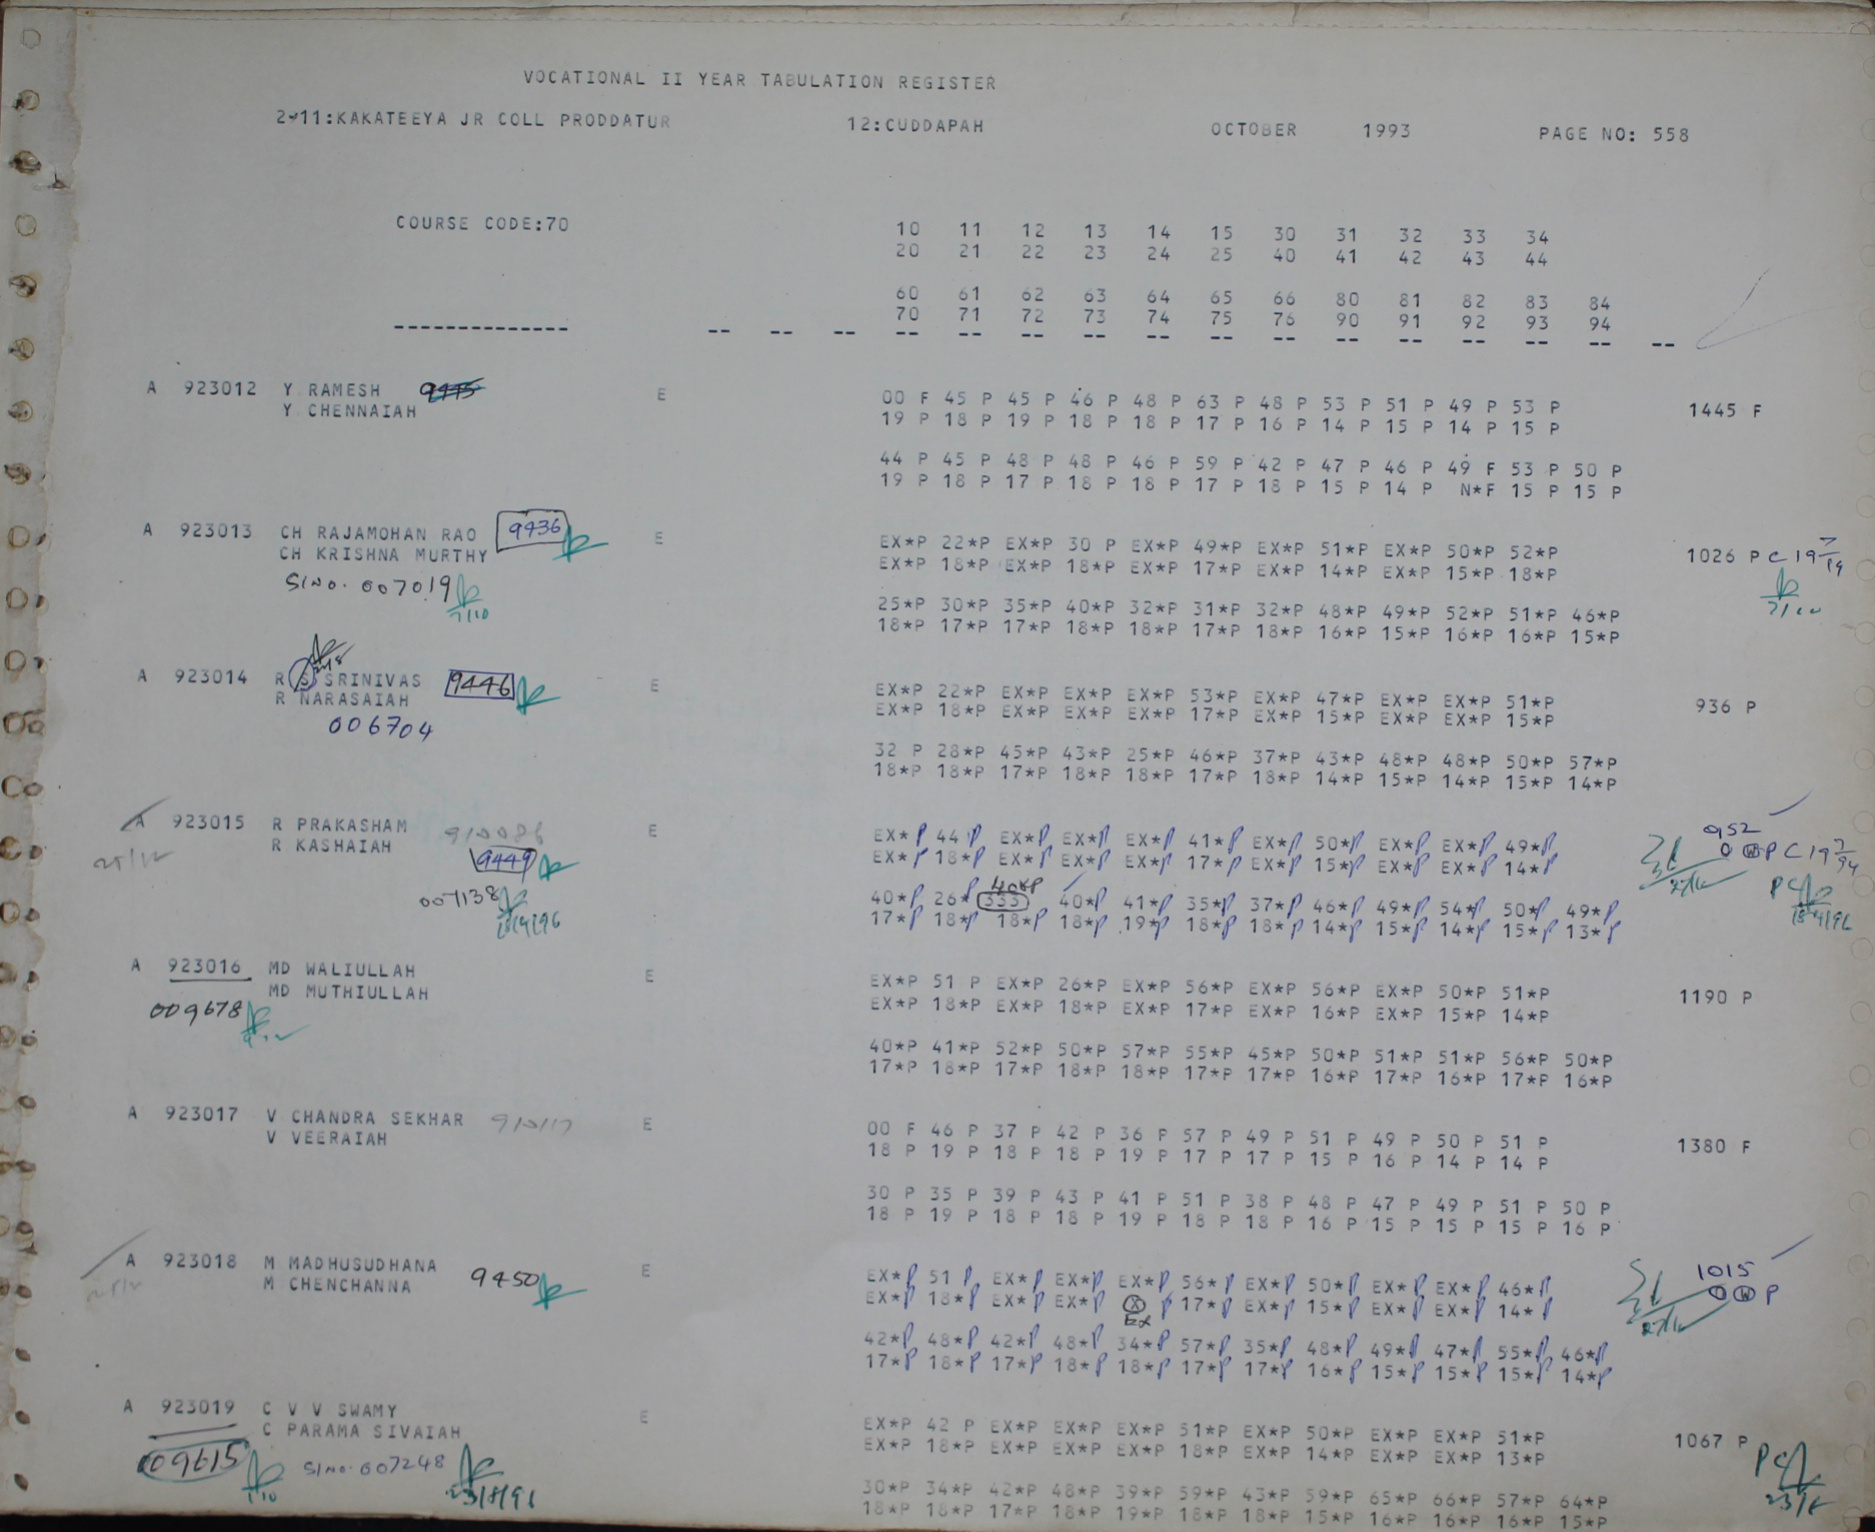 VOCATIONAL II YEAR TABULATION REGISTER
2-11:KAKATEEYA JR COLL PRODDATUR 12:CUDDAPAH OCTOBER 1993 PAGE NO: 558
COURSE CODE:70 10 11 12 13 14 15 30 31 32 33 34
20 21 22 23 24 25 40 41 42 43 44
60 61 62 63 64 65 66 80 81 82 83 84
70 71 72 73 74 75 76 90 91 92 93 94
-------------- -- -- -- -- -- -- -- -- -- -- -- -- -- -- -- --
A 923012 Y RAMESH E 00 F 45 P 45 P 46 P 48 P 63 P 48 P 53 P 51 P 49 P 53 P 1445 F
Y CHENNAIAH 19 P 18 P 19 P 18 P 18 P 17 P 16 P 14 P 15 P 14 P 15 P
44 P 45 P 48 P 48 P 46 P 59 P 42 P 47 P 46 P 49 F 53 P 50 P
19 P 18 P 17 P 18 P 18 P 17 P 18 P 15 P 14 P N*F 15 P 15 P
A 923013 CH RAJAMOHAN RAO 9436 E EX*P 22*P EX*P 30 P EX*P 49*P EX*P 51*P EX*P 50*P 52*P 1026 P
CH KRISHNA MURTHY EX*P 18*P EX*P 18*P EX*P 17*P EX*P 14*P EX*P 15*P 18*P
Sl No. 007019 25*P 30*P 35*P 40*P 32*P 31*P 32*P 48*P 49*P 52*P 51*P 46*P
7/10 18*P 17*P 17*P 18*P 18*P 17*P 18*P 16*P 15*P 16*P 16*P 15*P
A 923014 R S SRINIVAS 9446 E EX*P 22*P EX*P EX*P EX*P 53*P EX*P 47*P EX*P EX*P 51*P 936 P
R NARASAIAH EX*P 18*P EX*P EX*P EX*P 17*P EX*P 15*P EX*P EX*P 15*P
006704
32 P 28*P 45*P 43*P 25*P 46*P 37*P 43*P 48*P 48*P 50*P 57*P
18*P 18*P 17*P 18*P 18*P 17*P 18*P 14*P 15*P 14*P 15*P 14*P
A 923015 R PRAKASHAM 910086 E EX*P 44 P EX*P EX*P EX*P 41*P EX*P 50*P EX*P EX*P 49*P 952
R KASHAIAH 9449 EX*P 18*P EX*P EX*P EX*P 17*P EX*P 15*P EX*P EX*P 14*P 0 W P
007138 40*P 26*P 333 40*P 40*P 41*P 35*P 37*P 46*P 49*P 54*P 50*P 49*P
17*P 18*P 18*P 18*P 19*P 18*P 18*P 14*P 15*P 14*P 15*P 13*P
A 923016 MD WALIULLAH E EX*P 51 P EX*P 26*P EX*P 56*P EX*P 56*P EX*P 50*P 51*P 1190 P
MD MUTHIULLAH EX*P 18*P EX*P 18*P EX*P 17*P EX*P 16*P EX*P 15*P 14*P
009678
40*P 41*P 52*P 50*P 57*P 55*P 45*P 50*P 51*P 51*P 56*P 50*P
17*P 18*P 17*P 18*P 18*P 17*P 17*P 16*P 17*P 16*P 17*P 16*P
A 923017 V CHANDRA SEKHAR E 00 F 46 P 37 P 42 P 36 P 57 P 49 P 51 P 49 P 50 P 51 P 1380 F
V VEERAIAH 18 P 19 P 18 P 18 P 19 P 17 P 17 P 15 P 16 P 14 P 14 P
30 P 35 P 39 P 43 P 41 P 51 P 38 P 48 P 47 P 49 P 51 P 50 P
18 P 19 P 18 P 18 P 19 P 18 P 18 P 16 P 15 P 15 P 15 P 16 P
A 923018 M MADHUSUDHANA 9450 E EX*P 51 P EX*P EX*P EX*P 56*P EX*P 50*P EX*P EX*P 46*P 1015
M CHENCHANNA EX*P 18*P EX*P EX*P X P 17*P EX*P 15*P EX*P EX*P 14*P 0 W P
Ex
42*P 48*P 42*P 48*P 34*P 57*P 35*P 48*P 49*P 47*P 55*P 46*P
17*P 18*P 17*P 18*P 18*P 17*P 17*P 16*P 15*P 15*P 15*P 14*P
A 923019 C V V SWAMY E EX*P 42 P EX*P EX*P EX*P 51*P EX*P 50*P EX*P EX*P 51*P 1067 P
C PARAMA SIVAIAH EX*P 18*P EX*P EX*P EX*P 18*P EX*P 14*P EX*P EX*P 13*P
09615 Sl No. 007248
30*P 34*P 42*P 48*P 39*P 59*P 43*P 59*P 65*P 66*P 57*P 64*P
18*P 18*P 17*P 18*P 19*P 18*P 18*P 15*P 16*P 16*P 16*P 15*P